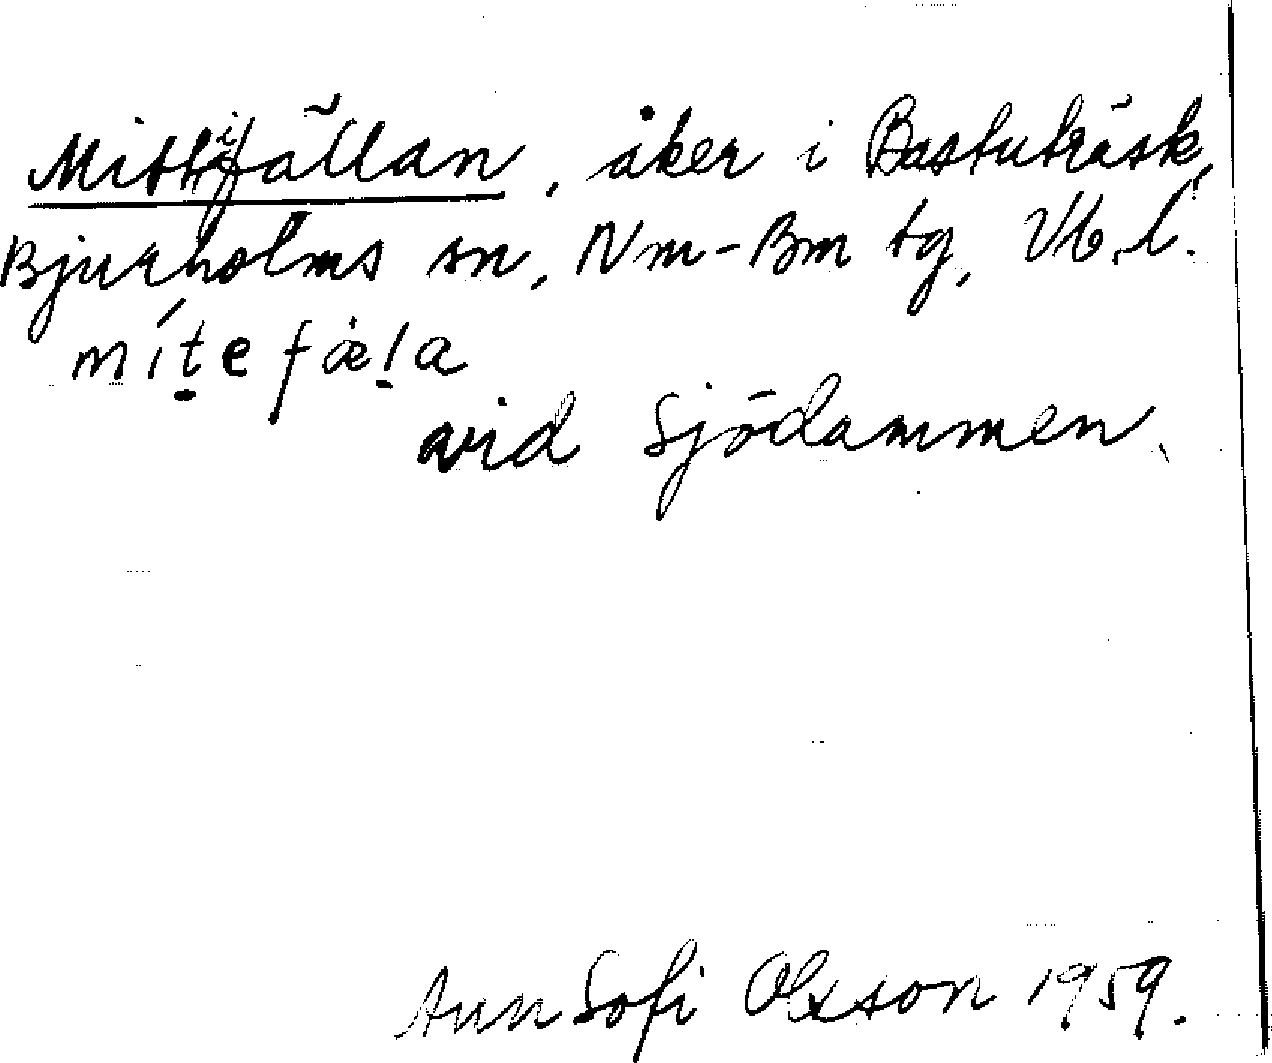 Mittifällan, åker i Bastuträsk,
Bjurholms sn, Nm-Bm tg, Vb.l.
mítẹfæ̀ḷa
vid Sjödammen.
Ann Sofi Olsson 1959.